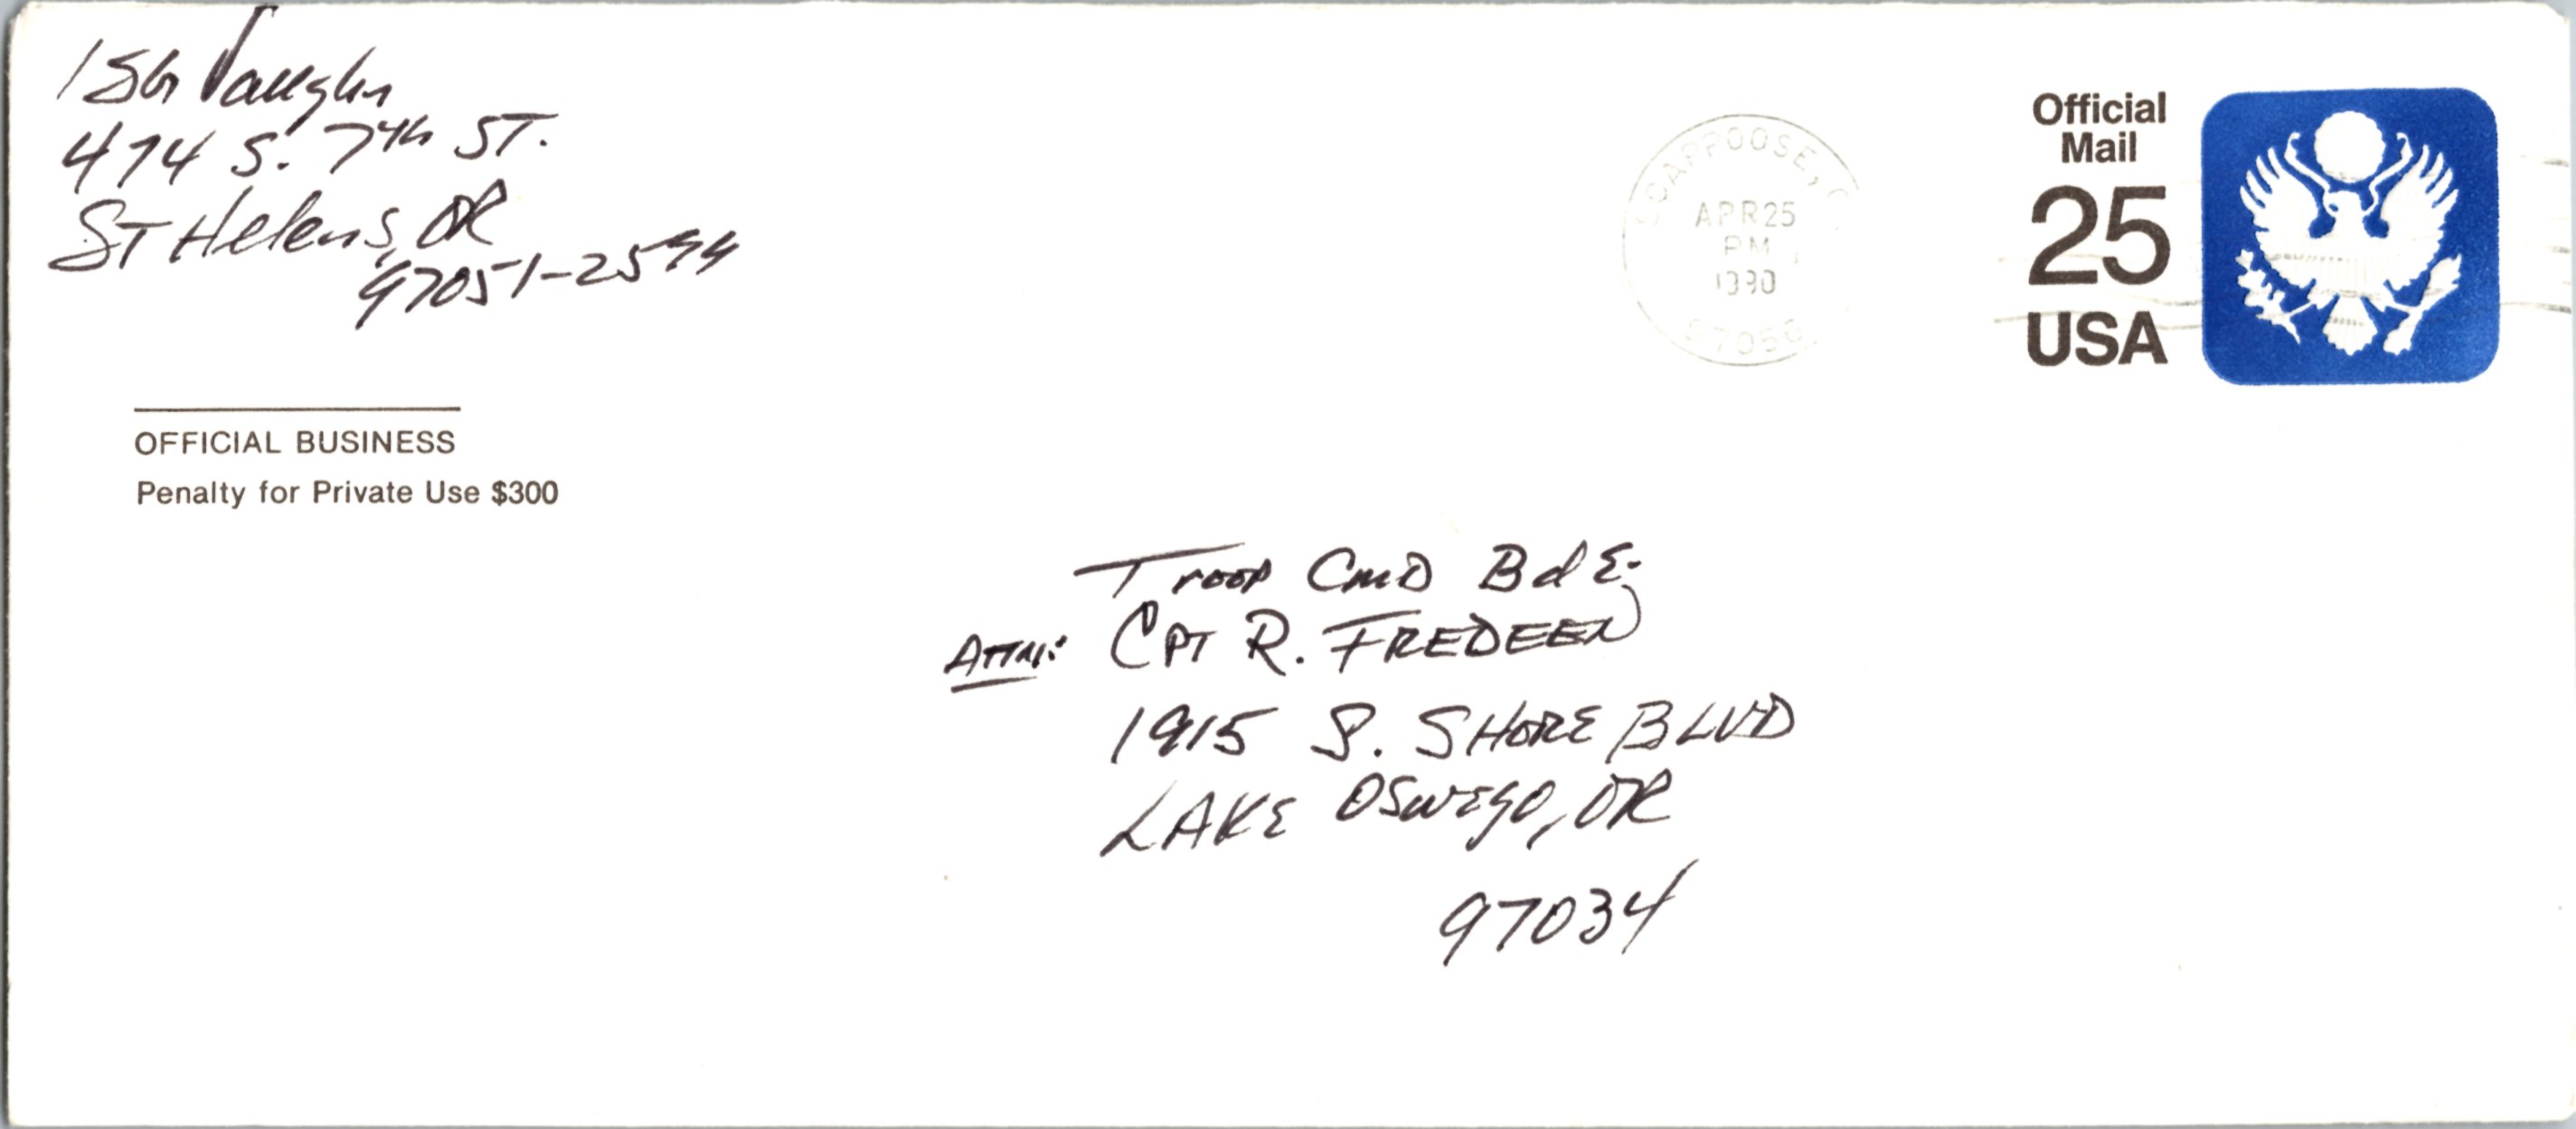 1SG Vaughn
474 S. 7th ST.
ST Helens, OR
97051-2594
OFFICIAL BUSINESS
Penalty for Private Use $300
SCAPPOOSE,
APR 25
PM
1990
Official
Mail
25
USA
Troop CMD BdE.
ATTN: CPT R. FREDEEN
1915 S. SHORE BLVD
LAKE OSWEGO, OR
97034